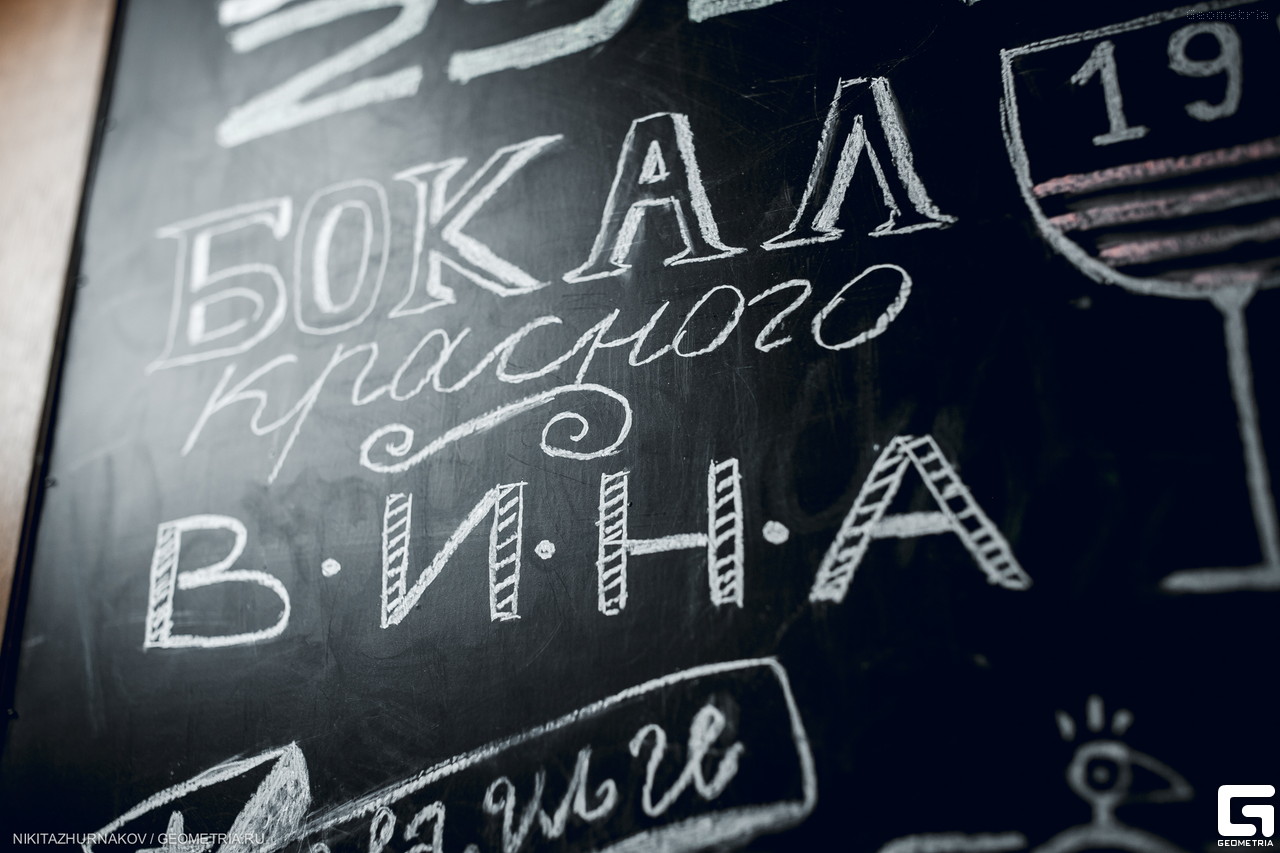 geometria
19
БОКАЛ
красного
В·И·Н·А
NIKITAZHURNAKOV / GEOMETRIA.RU
GEOMETRIA